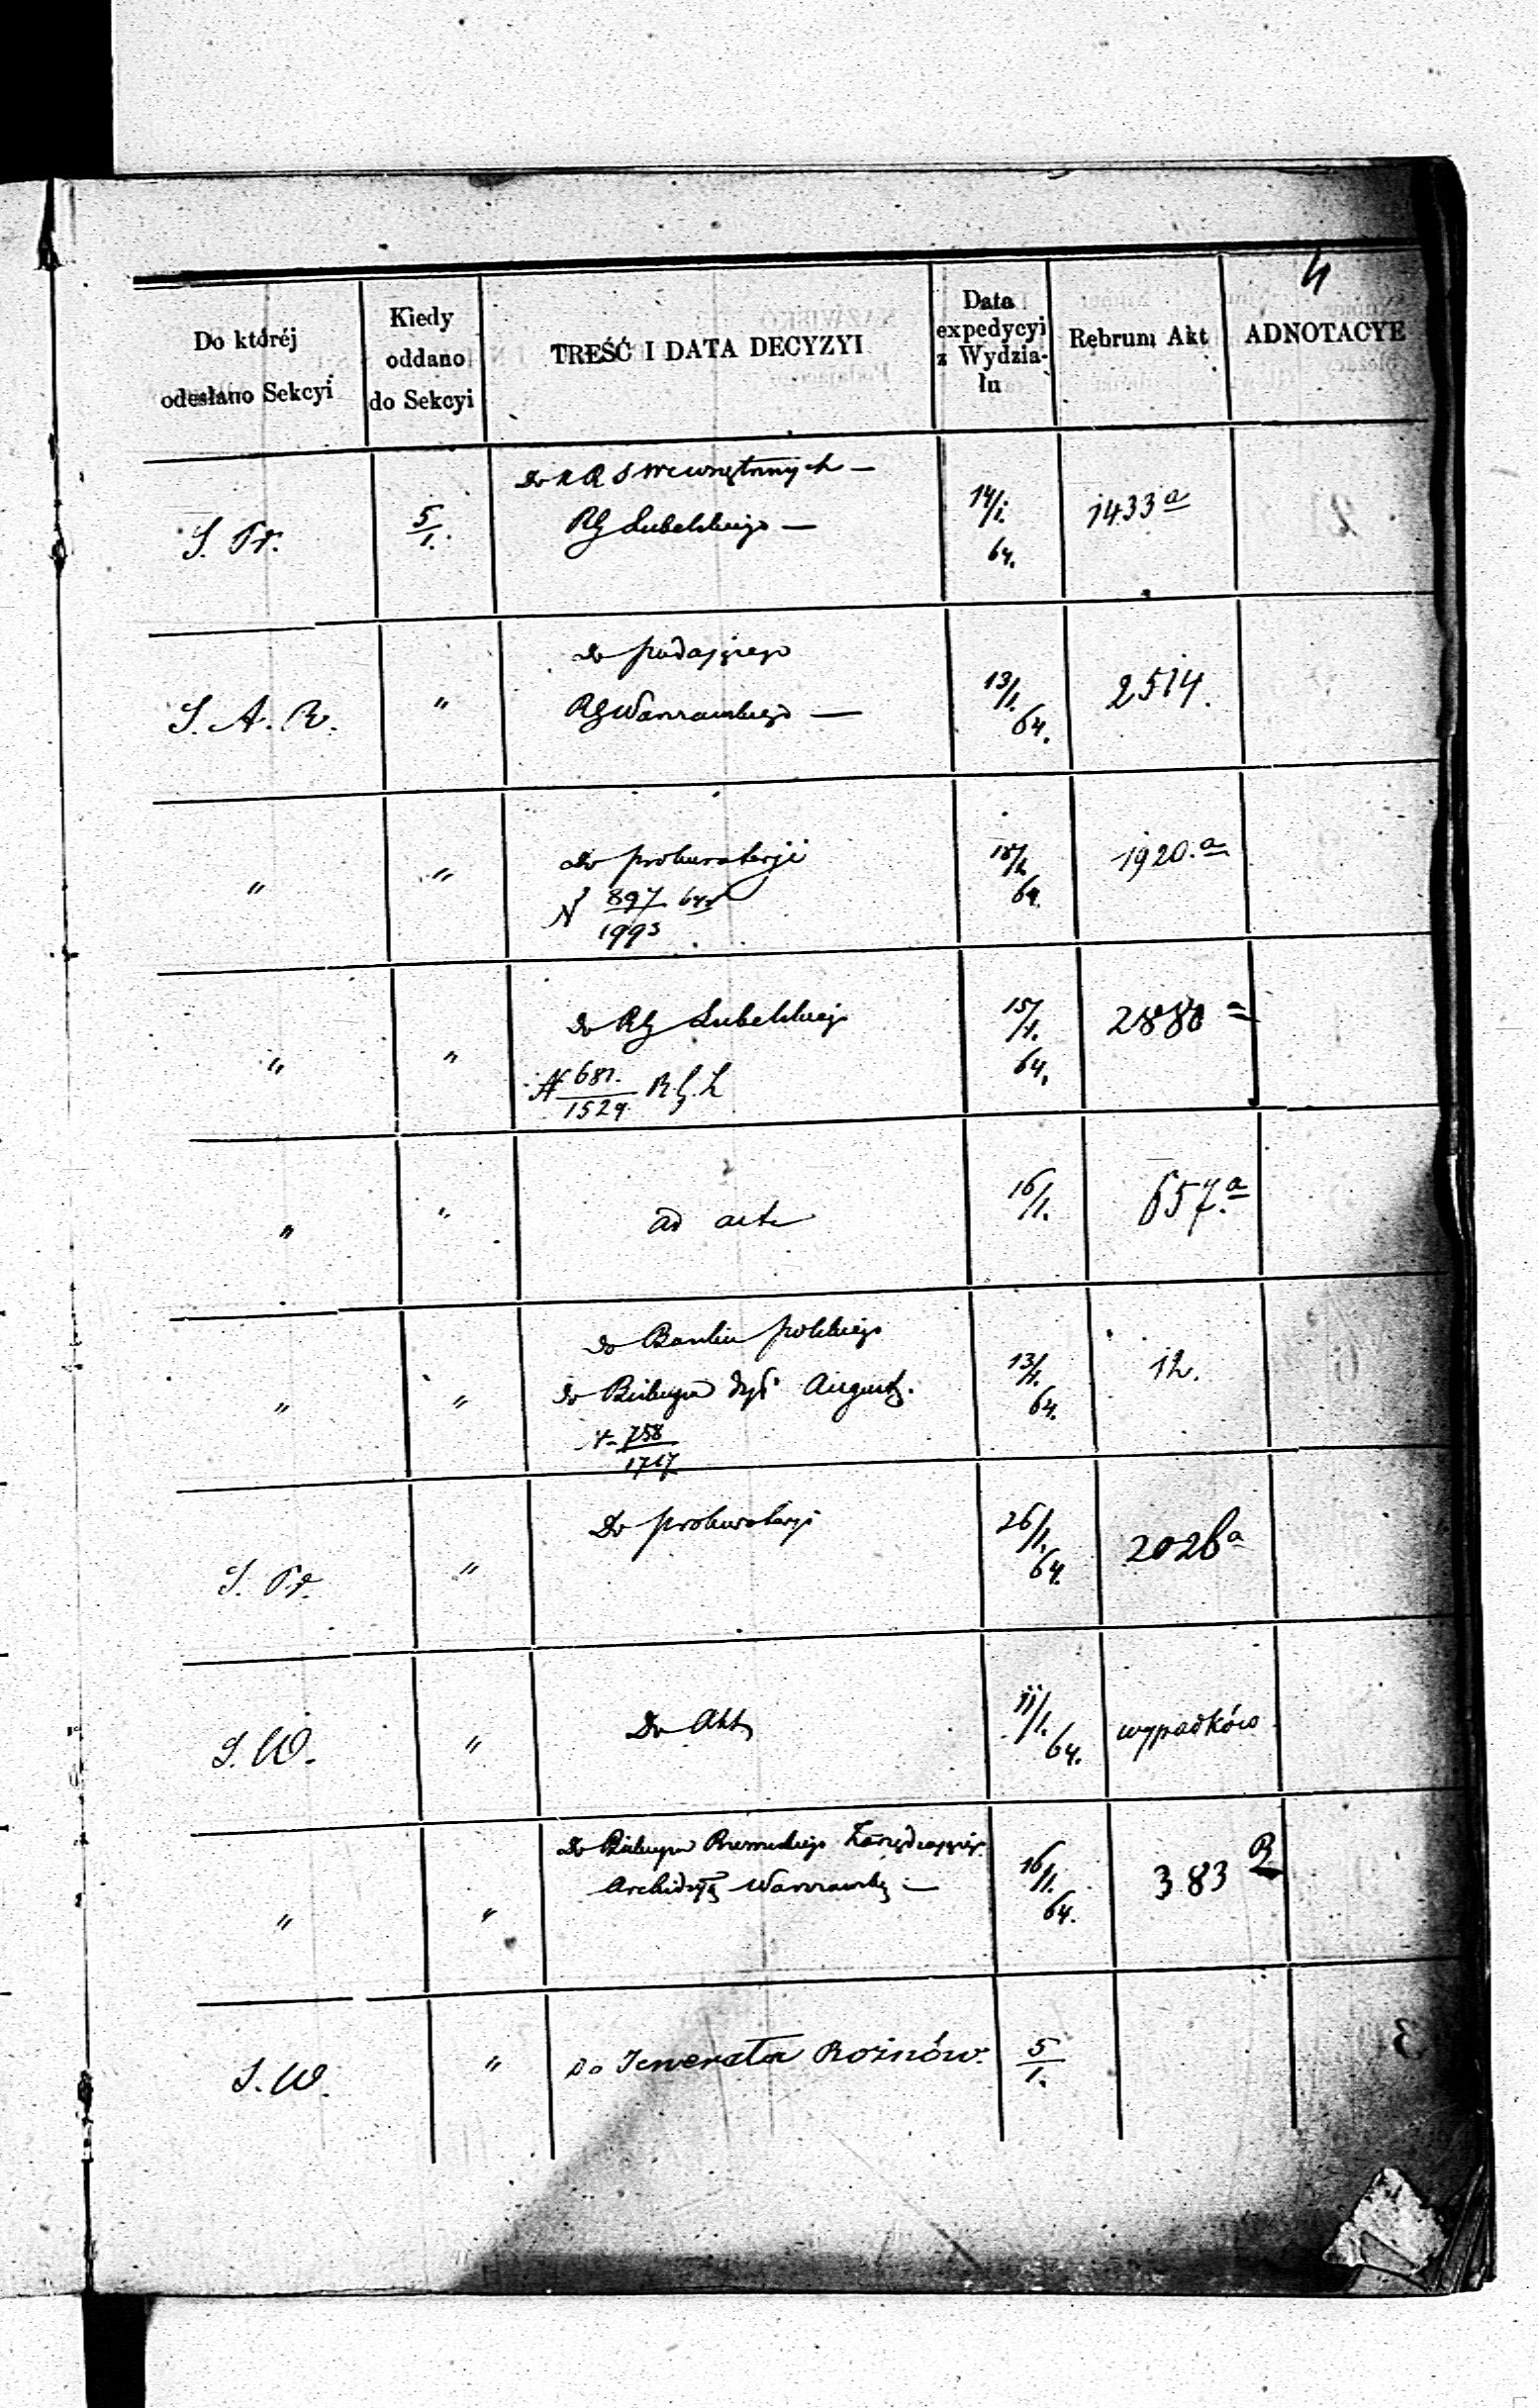 4
Do któréj odesłano Sekcyi
Kiedy oddano do Sekcyi
TREŚĆ I DATA DECYZYI
Data expedycyi z Wydziału
Rebrum Akt
ADNOTACYE
S. Pr.
5/1.
Do K R S Wewnętrznych —
RG Lubelskiego —
14/1. 64.
1433 a
S. A. R.
"
do podającego
RG Warszawskiego —
13/1. 64.
2514.
"
"
do prokuratorji
N 897/1993
64.
1920. a
"
"
do RG Lubelskiego
N 681./1529. R.G.L
15/1. 64.
2880 a
"
"
ad acta
16/1.
657. a
"
"
do Banku polskiego
do Biskupa dyć August.
N 758/1717
13/1. 64.
12.
S. Pr.
"
Do prokuratorji
26/1. 64.
2026 a
S. W.
"
Do Akt
11/1. 64.
wypadków
"
"
Do Biskupa Zarządzającego
Archidyec Warszawską —
16/1. 64.
383 R
S. W.
"
Do Jenerała Rożnów.
5/1.